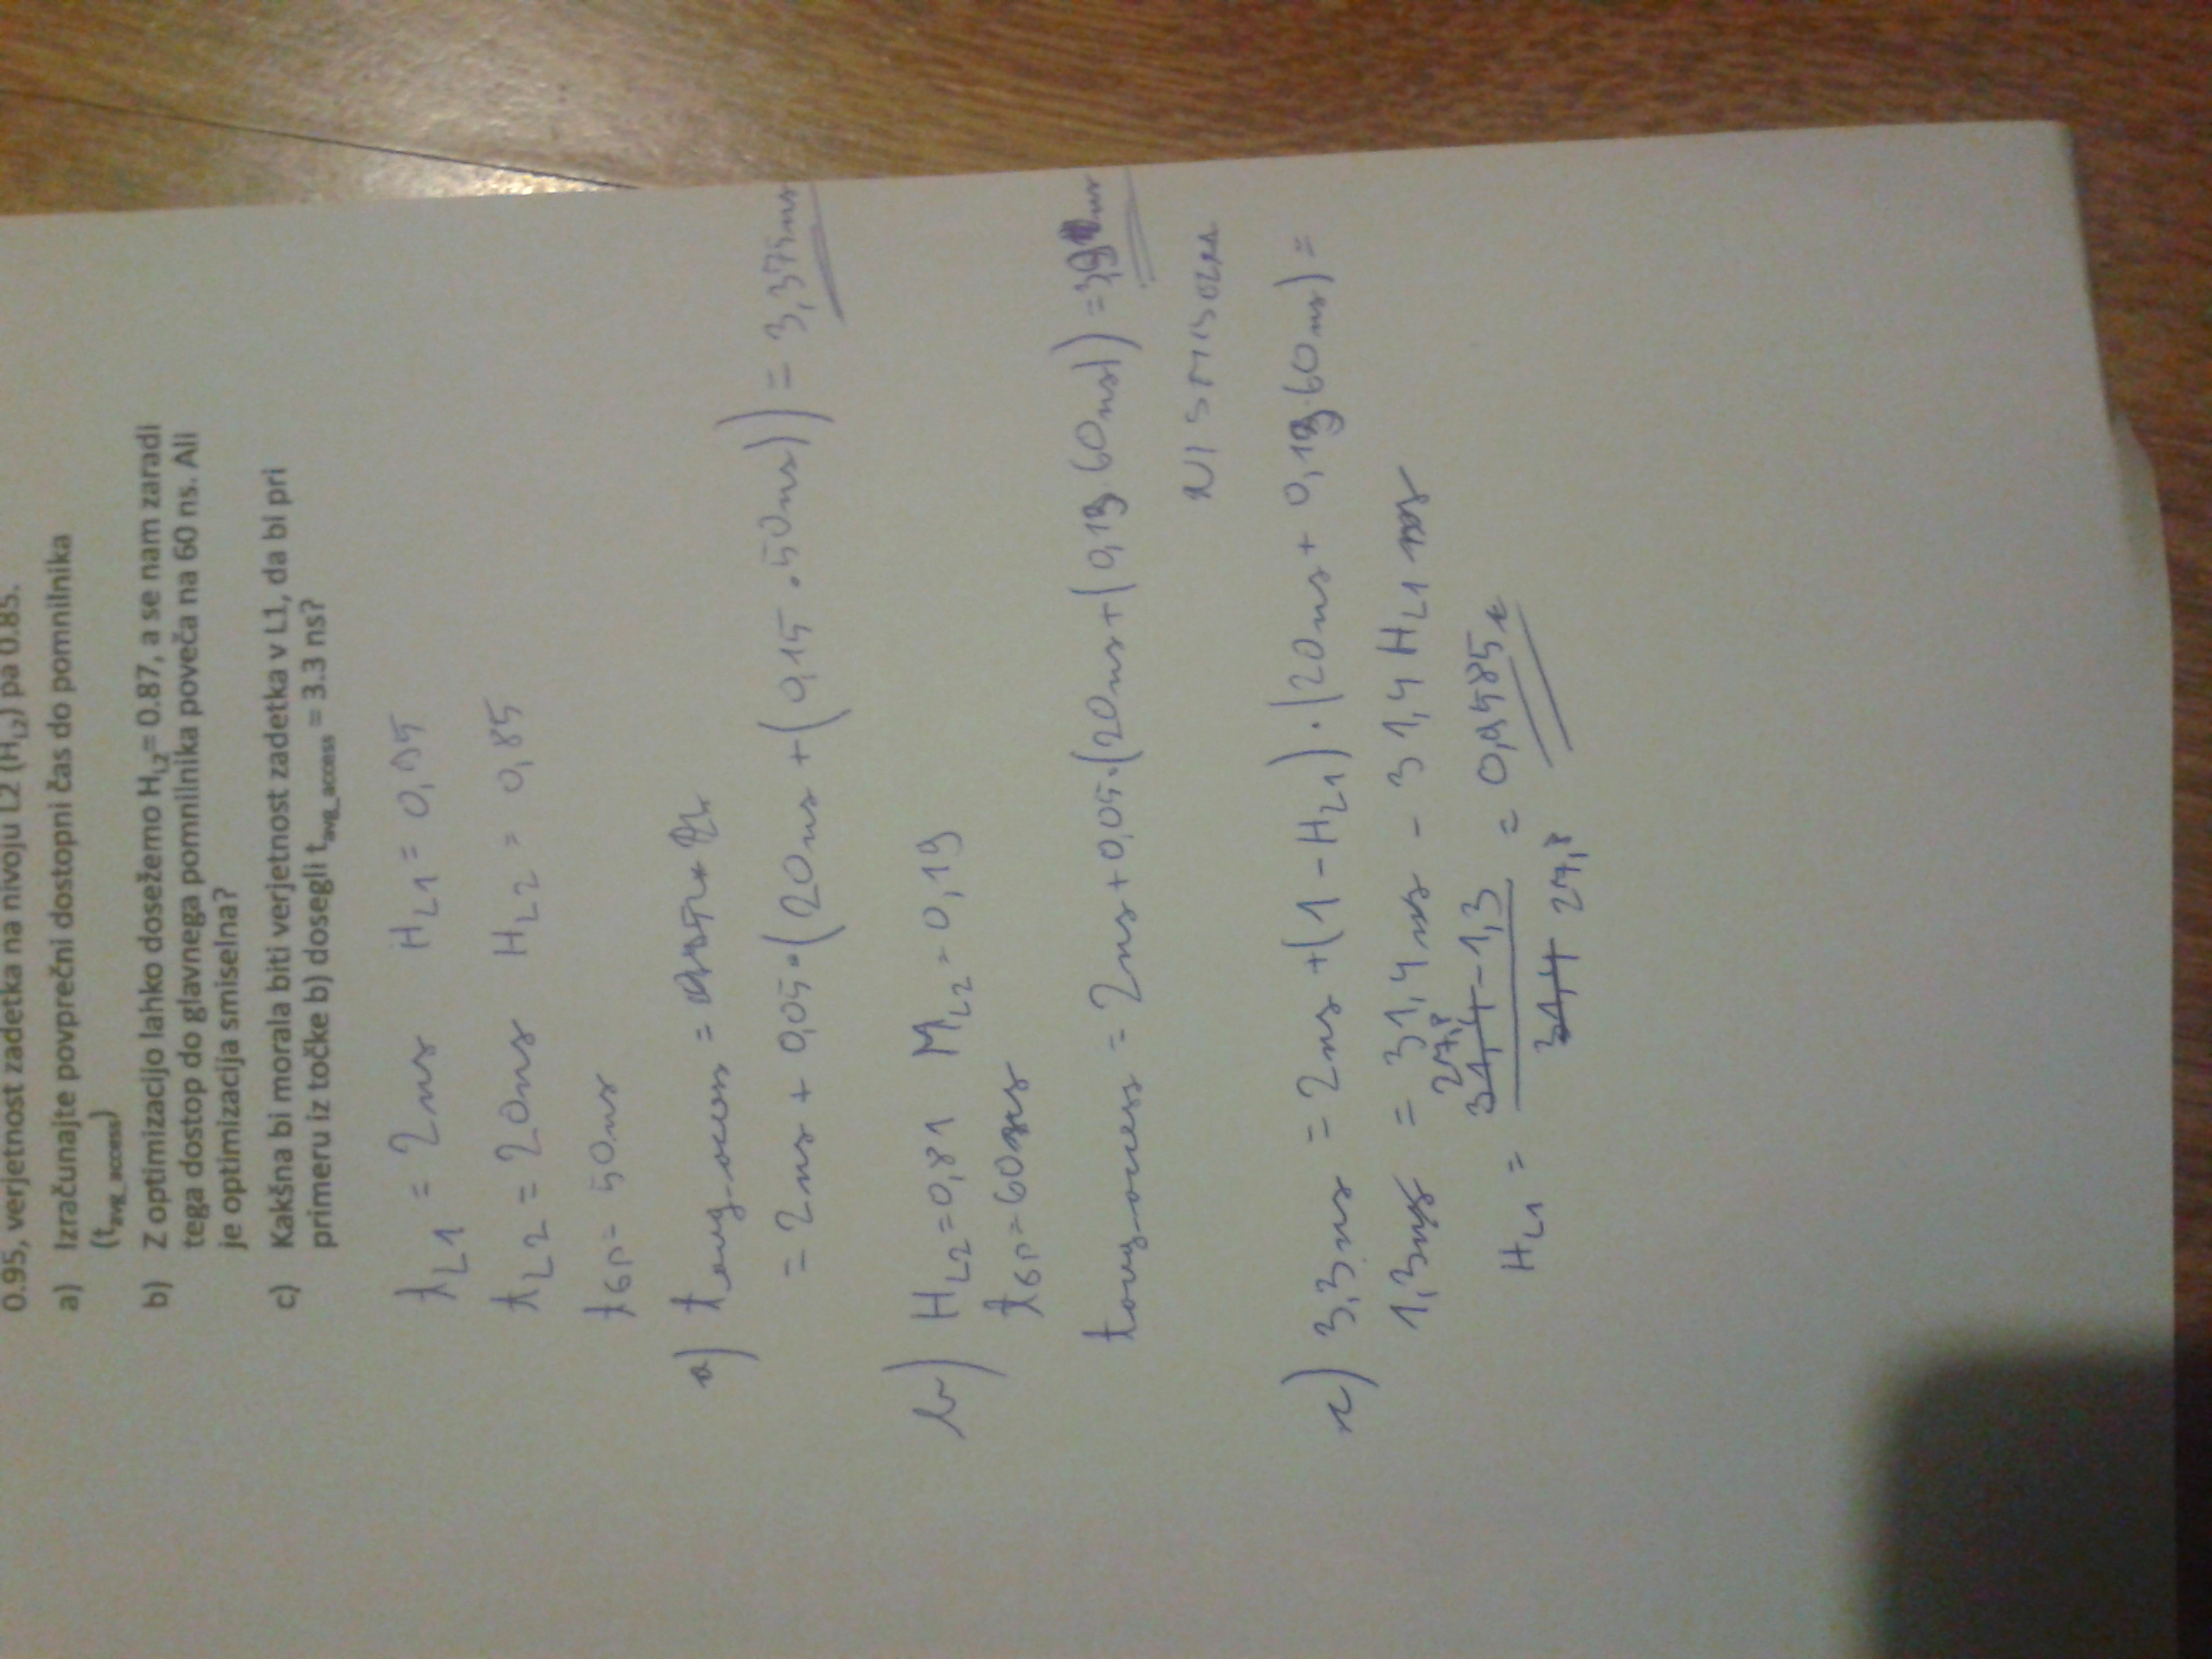 0.95, verjetnost zadetka na nivoju L2 (H_L2) pa 0.85.
a) Izračunajte povprečni dostopni čas do pomnilnika
(t_avg_access)
b) Z optimizacijo lahko dosežemo H_L2= 0.87, a se nam zaradi
tega dostop do glavnega pomnilnika poveča na 60 ns. Ali
je optimizacija smiselna?
c) Kakšna bi morala biti verjetnost zadetka v L1, da bi pri
primeru iz točke b) dosegli t_avg_access = 3.3 ns?
t_L1 = 2ns H_L1 = 0,95
t_L2 = 20ns H_L2 = 0,85
t_GP = 50ns
a) t_avg-access =
= 2ns + 0,05·(20ns + (0,15 · 50ns)) = 3,375ns
b) H_L2 = 0,81 M_L2 = 0,19
t_GP = 60ns
t_avg-access = 2ns + 0,05·(20ns + (0,13 60ns)) =
NI SMISELNA
c) 3,3ns = 2ns + (1 - H_L1) · (20ns + 0,13·60ns) =
1,3ns = 31,4ns - 31,4 H_L1
27,8
H_L1 = 31,4 - 1,3 = 0,9485
31,4 27,8